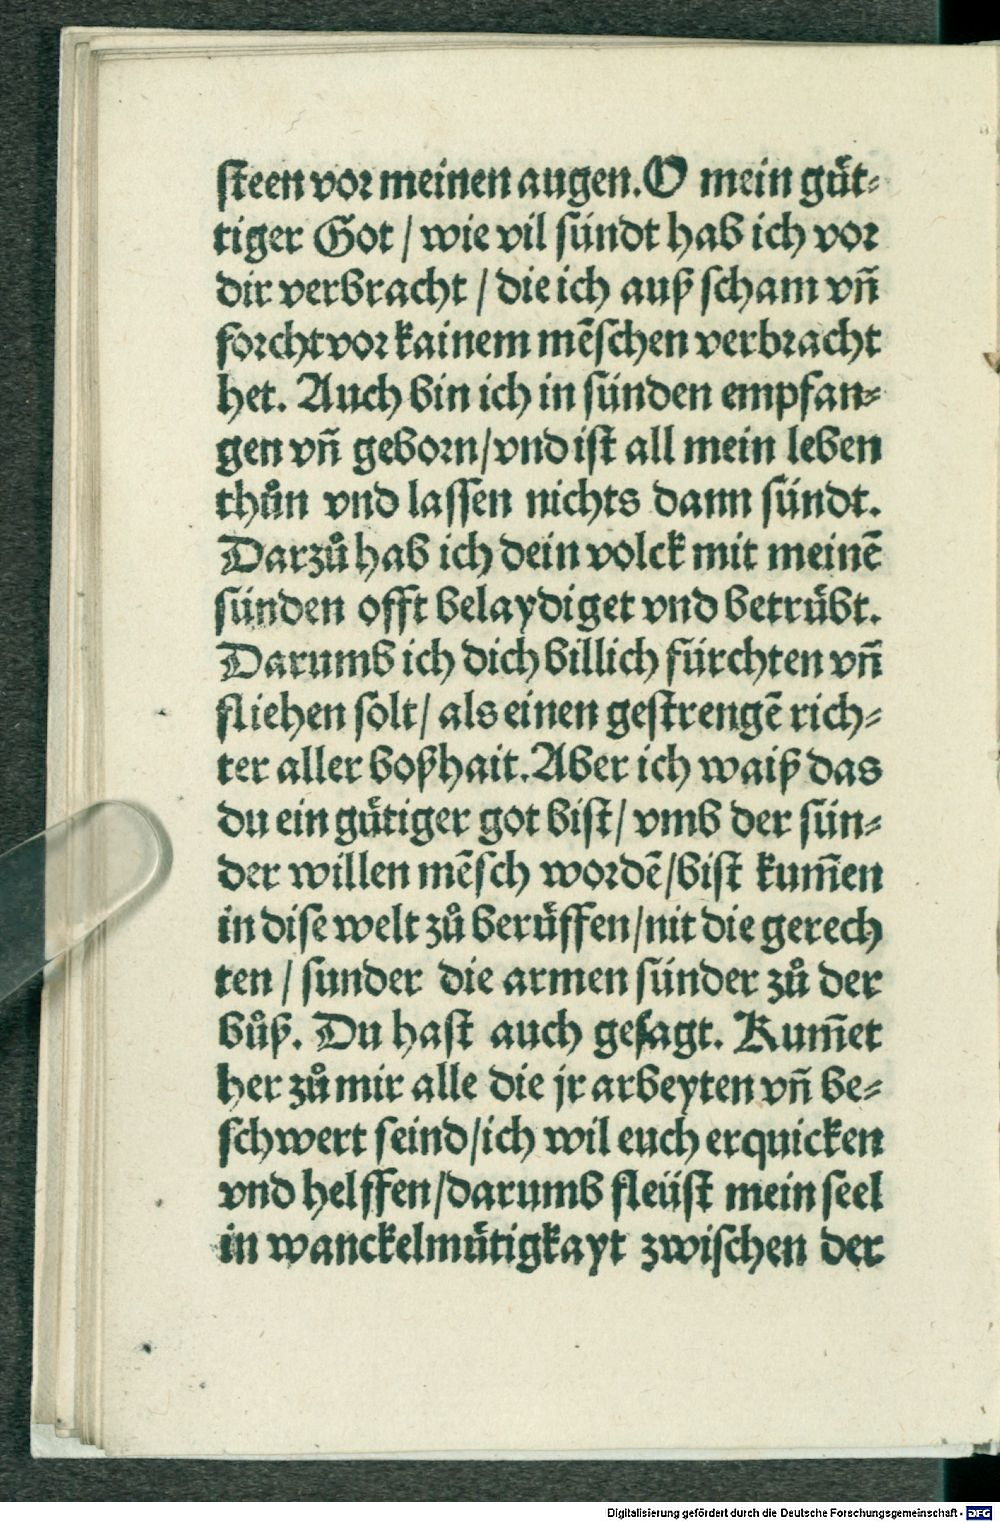 steen vor meinen augen. O mein guͤt⸗
tiger Got / wie vil sündt hab ich vor
dir verbracht / die ich auß scham vn̄
forcht vor kainem mēschen verbracht
het. Auch bin ich in sünden empfan⸗
gen vn̄ geborn / vnd ist all mein leben
thůn vnd lassen nichts dann sündt.
Darzů hab ich dein volck mit meinē
sünden offt belaydiget vnd betruͤbt.
Darumb ich dich billich fürchten vn̄
fliehen solt / als einen gestrengē rich⸗
ter aller boßhait. Aber ich waiß das
du ein guͤtiger got bist / vmb der sün⸗
der willen mēsch wordē / bist kum̄en
in dise welt zů beruͤffen / nit die gerech
ten / sunder die armen sünder zů der
bůß. Du hast auch gesagt. Kum̄et
her zů mir alle die jr arbeyten vn̄ be⸗
schwert seind / ich wil euch erquicken
vnd helffen / darumb fleüst mein seel
in wanckelmuͤtigkayt zwischen der
Digitalisierung gefördert durch die Deutsche Forschungsgemeinschaft - DFG